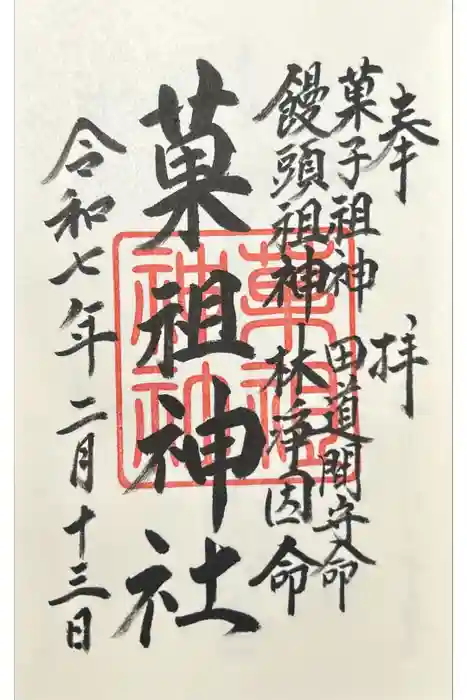 奉拝
菓子祖神 田道間守命
饅頭祖神 林淨因命
菓祖神社
令和七年二月十三日
菓祖
神社